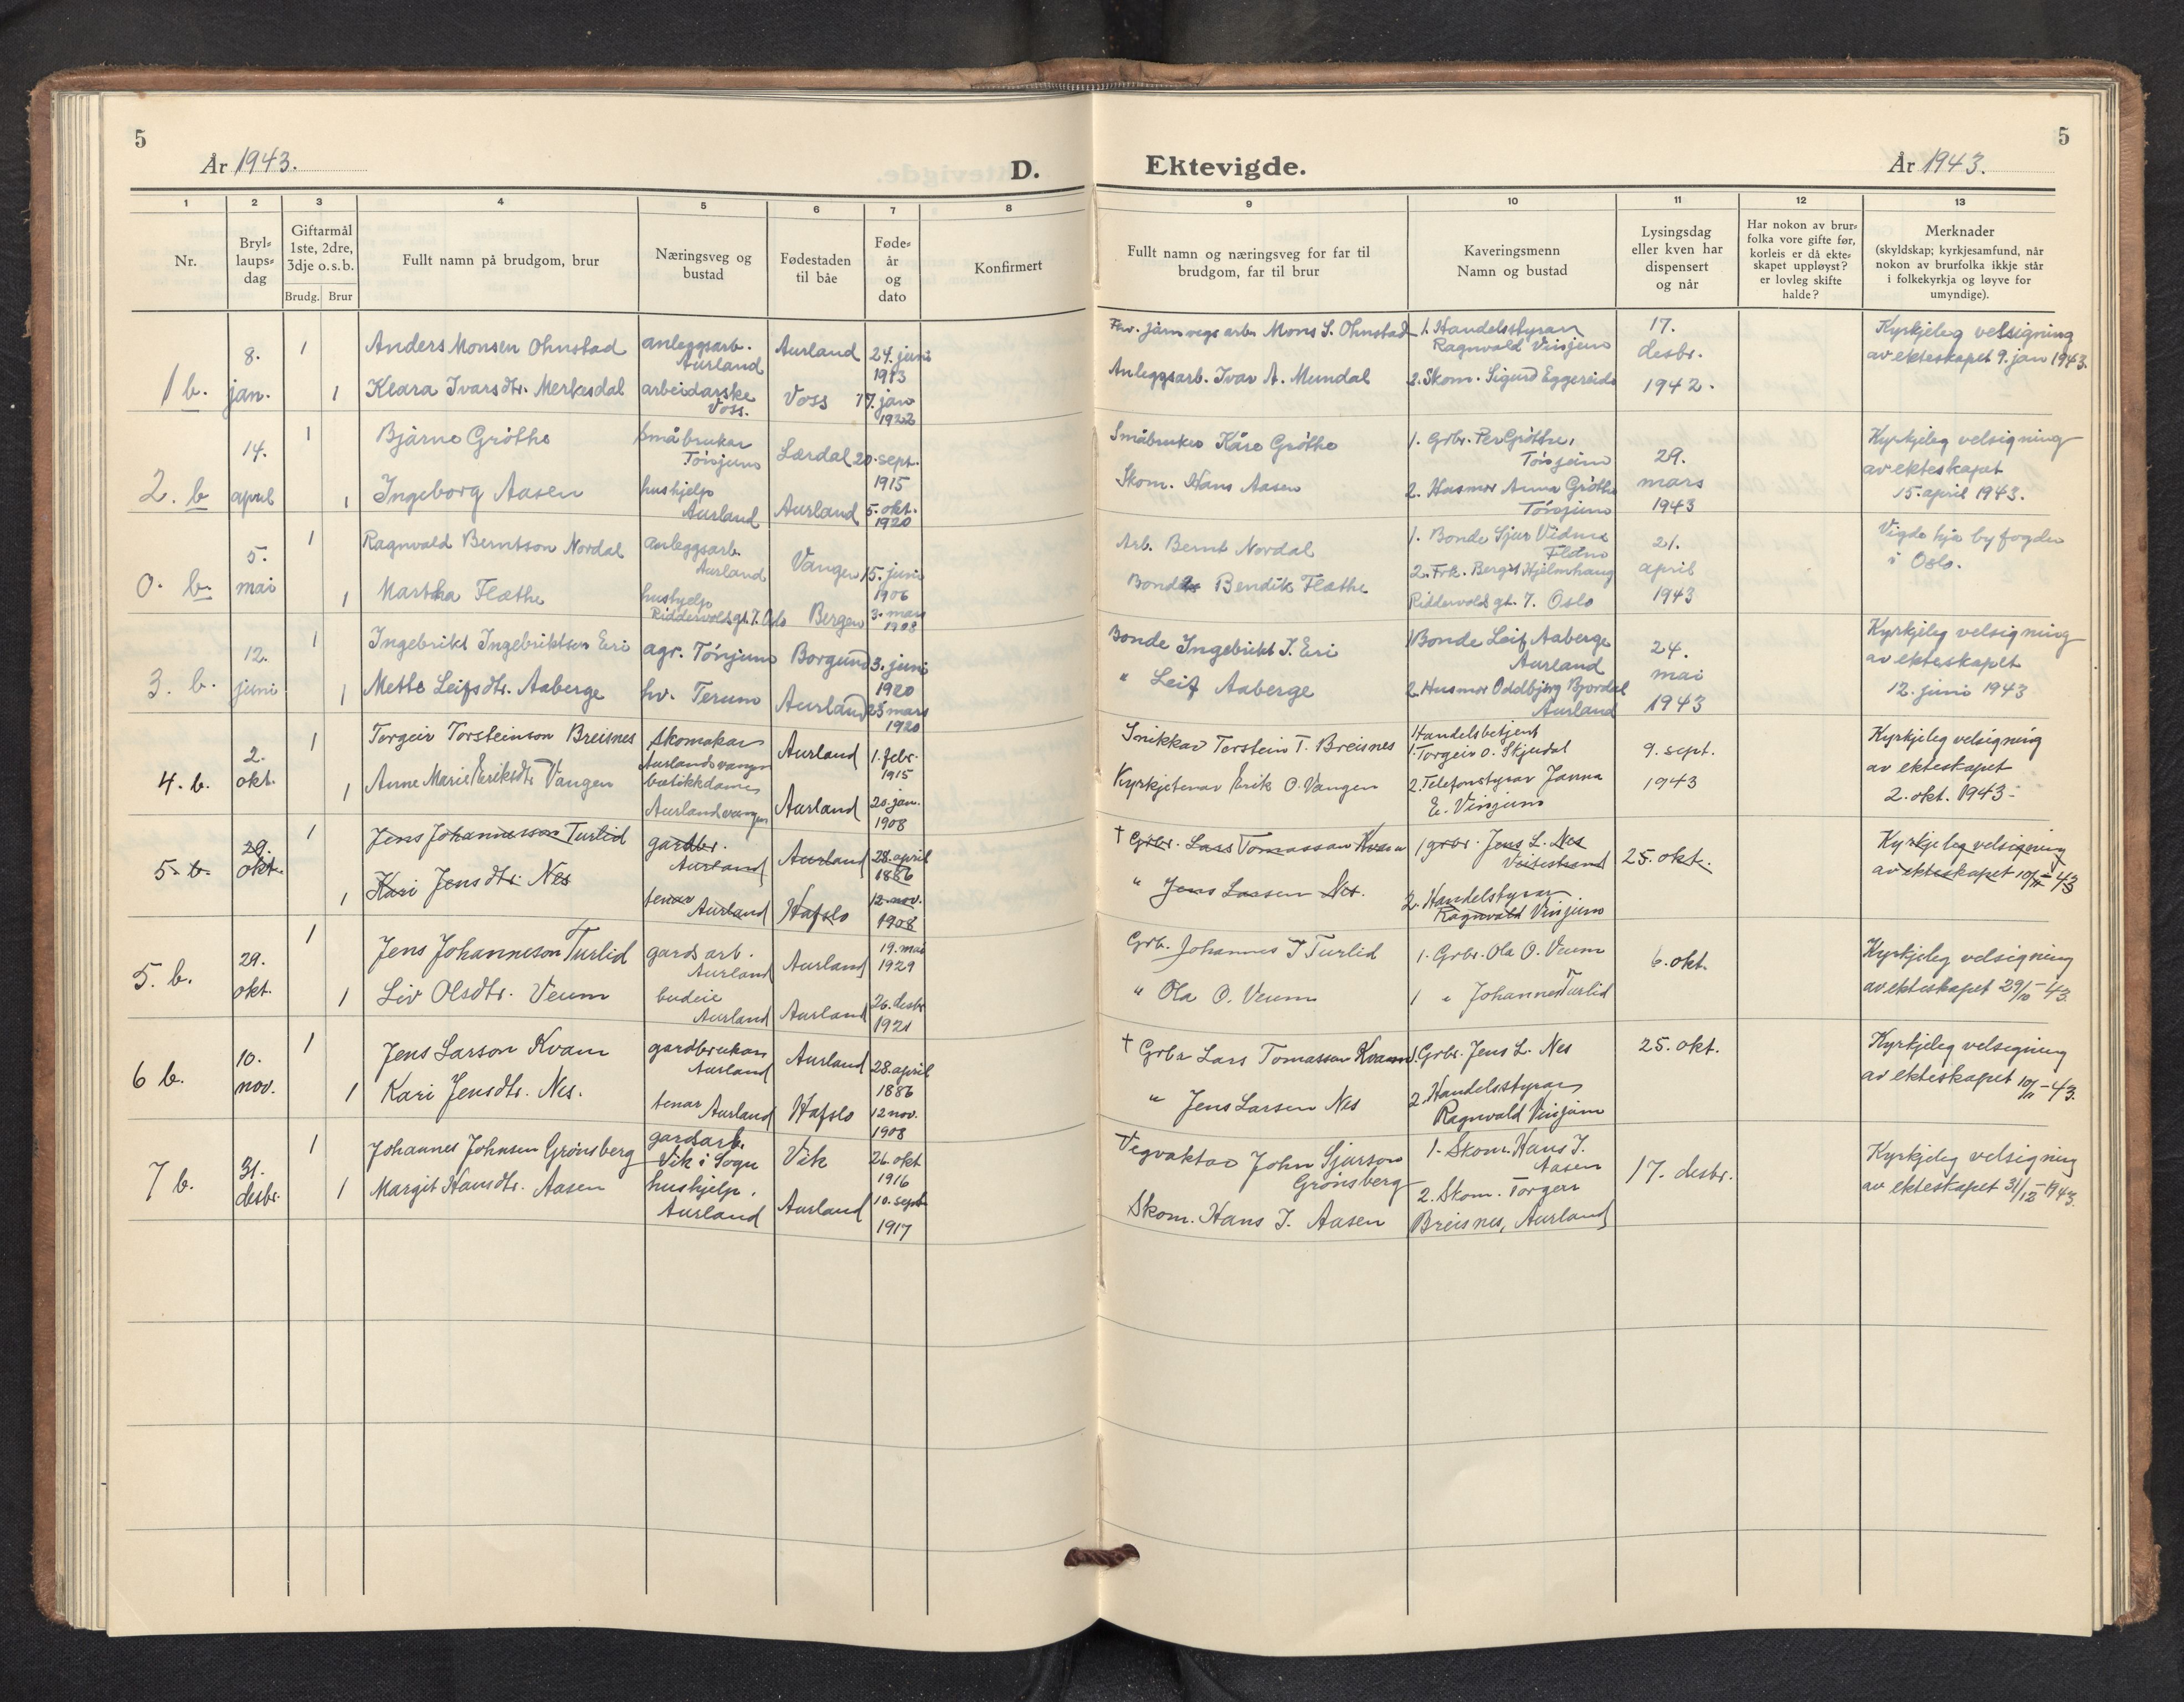 5
År 1943.
D.
1 2 3 4 5 6 7 8
Nr.
Bryl-
laups-
dag
Giftarmål
1ste, 2dre,
3dje o. s. b.
Brudg. Brur
Fullt namn på brudgom, brur
Næringsveg og
bustad
Fødestaden
til båe
Føde-
år
og
dato
Konfirmert
1 b.
8.
jan.
1
Anders Monsen Ohnstad
anleggsarb.
Aurland
Aurland
24. juni
1913
1
Klara Ivarsdtr. Merkesdal
arbeidarske
Voss.
Voss
17. jan
1922
2. b
14.
april
1
Bjàrne Gróthe
Småbrukar
Tónjum
Lærdal
20. sept.
1915
1
Ingeborg Aasen
hushjelp
Aurland
Aurland
5. okt.
1920
0. b.
5.
mai
1
Ragnvald Berntson Nordal
anleggsarb.
Aurland
Vangen
15. juni
1906
1
Martha Flæthe
hushjelp
Riddervoldsgt. 7. Oslo
Bergen
3. mars
1908
3. b.
12.
juni
1
Ingebrikt Ingebriktson Eri
agr. Tónjum
Borgund
3. juni
1920
1
Mette Leifsdtr. Aaberge
hv. Terum
Aurland
25 mars
1920
4. b.
2.
okt.
1
Torgeir Torsteinson Breisnes
skomakar
Aurlandsvangen
Aurland
1. febr.
1915
1
Anne Marie Eriksdtr Vangen
butikkdame
Aurlandsvangen
Aurland
20. jan.
1908
5. b.
29.
okt.
1
Jens Johannesson Turlid
gardbr.
Aurland
Aurland
28. april
1886
1
Kari Jensdtr. Nes
tenar
Aurland
Hafslo
12. nov.
1908
5. b.
29.
okt.
1
Jens Johanneson Turlid
gardsarb.
Aurland
Aurland
19. mai
1929
1
Liv Olsdtr. Veum
budeie
Aurland
Aurland
26. desbr
1921
6 b.
10.
nov.
1
Jens Larson Kvam
gardbrukar
Aurland
Aurland
28. april
1886
1
Kari Jensdtr. Nes.
tenar Aurland
Hafslo
12 nov.
1908
7 b.
31.
desbr.
1
Johannes Johnsen Grønsberg
gardsarb.
Vik i Sogn
Vik
26. okt
1916
1
Margit Hansdtr. Aasen
hushjelp.
Aurland
Aurland
10. sept
1917
5
Ektevigde.
År 1943.
9 10 11 12 13
Fullt namn og næringsveg for far til
brudgom, far til brur
Kaveringsmenn
Namn og bustad
Lysingsdag
eller kven har
dispensert
og når
Har nokon av brur-
folka vore gifte før,
korleis er då ekte-
skapet uppløyst?
er lovleg skifte
halde?
Merknader
(skyldskap; kyrkjesamfund, når
nokon av brurfolka ikkje står
i folkekyrkja og løyve for
umyndige).
jarnvegsarb. Mons S. Ohnstad
Anleggsarb. Ivar A. Mundal
1. Handelsstyrar
Ragnvald Vinjum
2. Skom. Sigurd Eggereide
17.
desbr.
1942.
Kyrkjeleg velsigning
av ekteskapet 9. jan 1943.
Småbruker Kåre Gróthe
Skom. Hans Aasen
1. Grbr. Per Gróthe,
Tónjum
2. Husmor Anna Gróthe
Tónjum
29.
mars
1943
Kyrkjeleg velsigning
av ekteskapet
15. april 1943.
Arb. Bernt Nordal
Bonde Bendik Flæthe
1. Bonde Sjur Vidme
Flåm
2. Frk. Bergit Hjelmhaug
Riddervolds gt. 7. Oslo
21.
april
1943
Vigde hjå byfogden
i Oslo.
Bonde Ingebrikt I. Eri
" Leif Aaberge
1 Bonde Leif Aaberge
Aurland
2. Husmor Oddbjørg Bjordal
Aurland
24.
mai
1943
Kyrkjeleg velsigning
av ekteskapet
12. juni 1943
Snikkar Torstein T. Breisnes
Kyrkjetenar Erik O. Vangen
Handelsbetjent
1. Torgeir O. Skjerdal
2. Telefonstyrar Janna
E. Vinjum
9. sept.
1943
Kyrkjeleg velsigning
av ekteskapet
2. okt. 1943.
† Grbr. Lars Tomasson Kvam
" Jens Larsen Nes.
1 grbr. Jens L. Nes
Veitestrand
2. Handelstyrar
Ragnvald Vinjum
25. okt.
Kyrkjeleg velsigning
av ekteskapet 10/11-43
Grb. Johannes J Turlid
" Ola O. Veum
1. Grbr. Ola O. Veum
1 " Johannes Turlid
6. okt.
Kyrkjeleg velsigning
av ekteskapet 29/10-43.
† Grbr Lars Tomasson Kvam
" Jens Larsen Nes
1. Grbr. Jens L. Nes
2. Handelsstyrar
Ragnvald Vinjum
25. okt.
Kyrkjeleg velsigning
av ekteskapet 10/11-43.
Vegvaktar John Sjurson
Grønsberg
Skom. Hans I. Aasen
1. Skom. Hans I.
Aasen
2. Skom. Torgeir
Breisnes, Aurland
17. desbr.
Kyrkjeleg velsigning
av ekteskapet 31/12-1943.